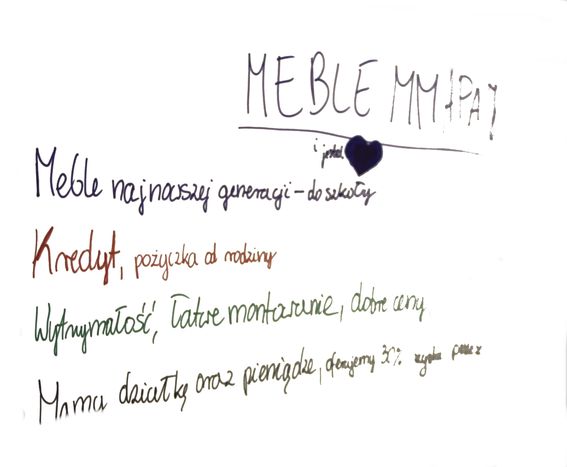 MEBLE
i jesteś
Meble najnowszej generacji – do szkoły
Kredyt, pożyczka od rodziny
Wytrzymałość, łatwe montowanie, dobre ceny
Mama działkę oraz pieniądze, oferujemy 30%